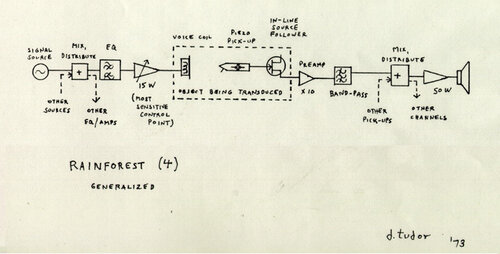 SIGNAL
SOURCE
MIX,
DISTRIBUTE
EQ
VOICE COIL
PIEZO
PICK-UP
IN-LINE
SOURCE
FOLLOWER
PREAMP
X 10
BAND-PASS
MIX,
DISTRIBUTE
50 W
15 W
(MOST
SENSITIVE
CONTROL
POINT)
OBJECT BEING TRANSDUCED
OTHER
SOURCES
OTHER
EQ/AMPS
OTHER
PICK-UPS
OTHER
CHANNELS
RAINFOREST (4)
GENERALIZED
d. tudor '73